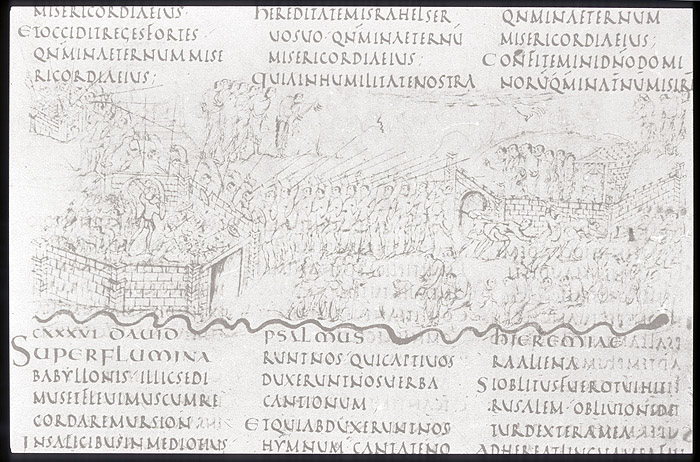 MISERICORDIAEIUS
ETOCCIDITREGESFORTES
QNMINAETERNUMMISE
RICORDIAEIUS:
HEREDITATEMISRAHELSER
UOSUO QNMINAETERNU
MISERICORDIAEIUS:
QUIAINHUMILITATENOSTRA
QNMINAETERNUM
MISERICORDIAEIUS:
CONFITEMINIDNODOMI
NORUQMINAT̄NUMISIR
CXXXVI DAUID
SUPERFLUMINA
BABYLLONIS ILLICSEDI
MUSETFLEUIMUSCUMRE
CORDAREMURSION
INSALICIBUSINMEDIOEIUS
PSALMUS
RUNTNOS QUICAPTIUOS
DUXERUNTNOSUERBA
CANTIONUM
ETQUIABDUXERUNTNOS
HYMNUM CANTATENO
HIEREMIAE
RAALIENA
SIOBLITUSFUEROTUIHIE
RUSALEM OBLIUIONIDET
TURDEXTERAMEA
ADHEREATLINGUAMEA